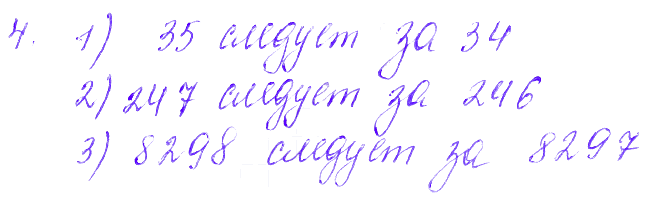 4. 1) 35 следует за 34
2) 247 следует за 246
3) 8298 следует за 8297